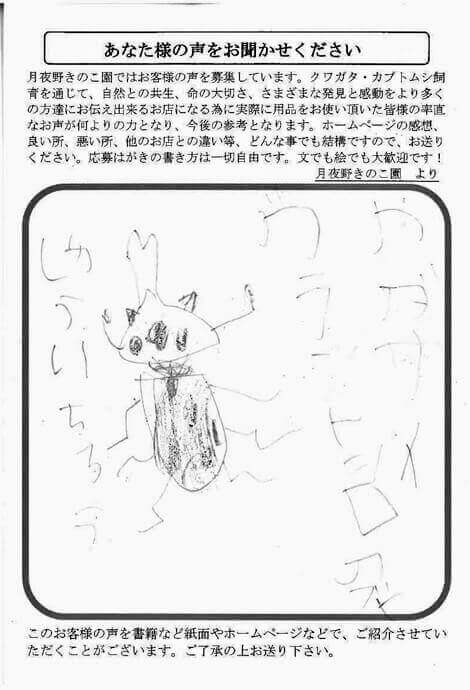 あなた様の声をお聞かせください
月夜野きのこ園ではお客様の声を募集しています。クワガタ・カブトムシ飼
育を通じて、自然との共生、命の大切さ、さまざまな発見と感動をより多く
の方達にお伝え出来るお店になる為に実際に用品をお使い頂いた皆様の率直
なお声が何よりの力となり、今後の参考となります。ホームページの感想、
良い所、悪い所、他のお店との違い等、どんな事でも結構ですので、お送り
ください。応募はがきの書き方は一切自由です。文でも絵でも大歓迎です！
月夜野きのこ園　より
しゅういちろう
このお客様の声を書籍など紙面やホームページなどで、ご紹介させてい
ただくことがございます。ご了承の上お送り下さい。